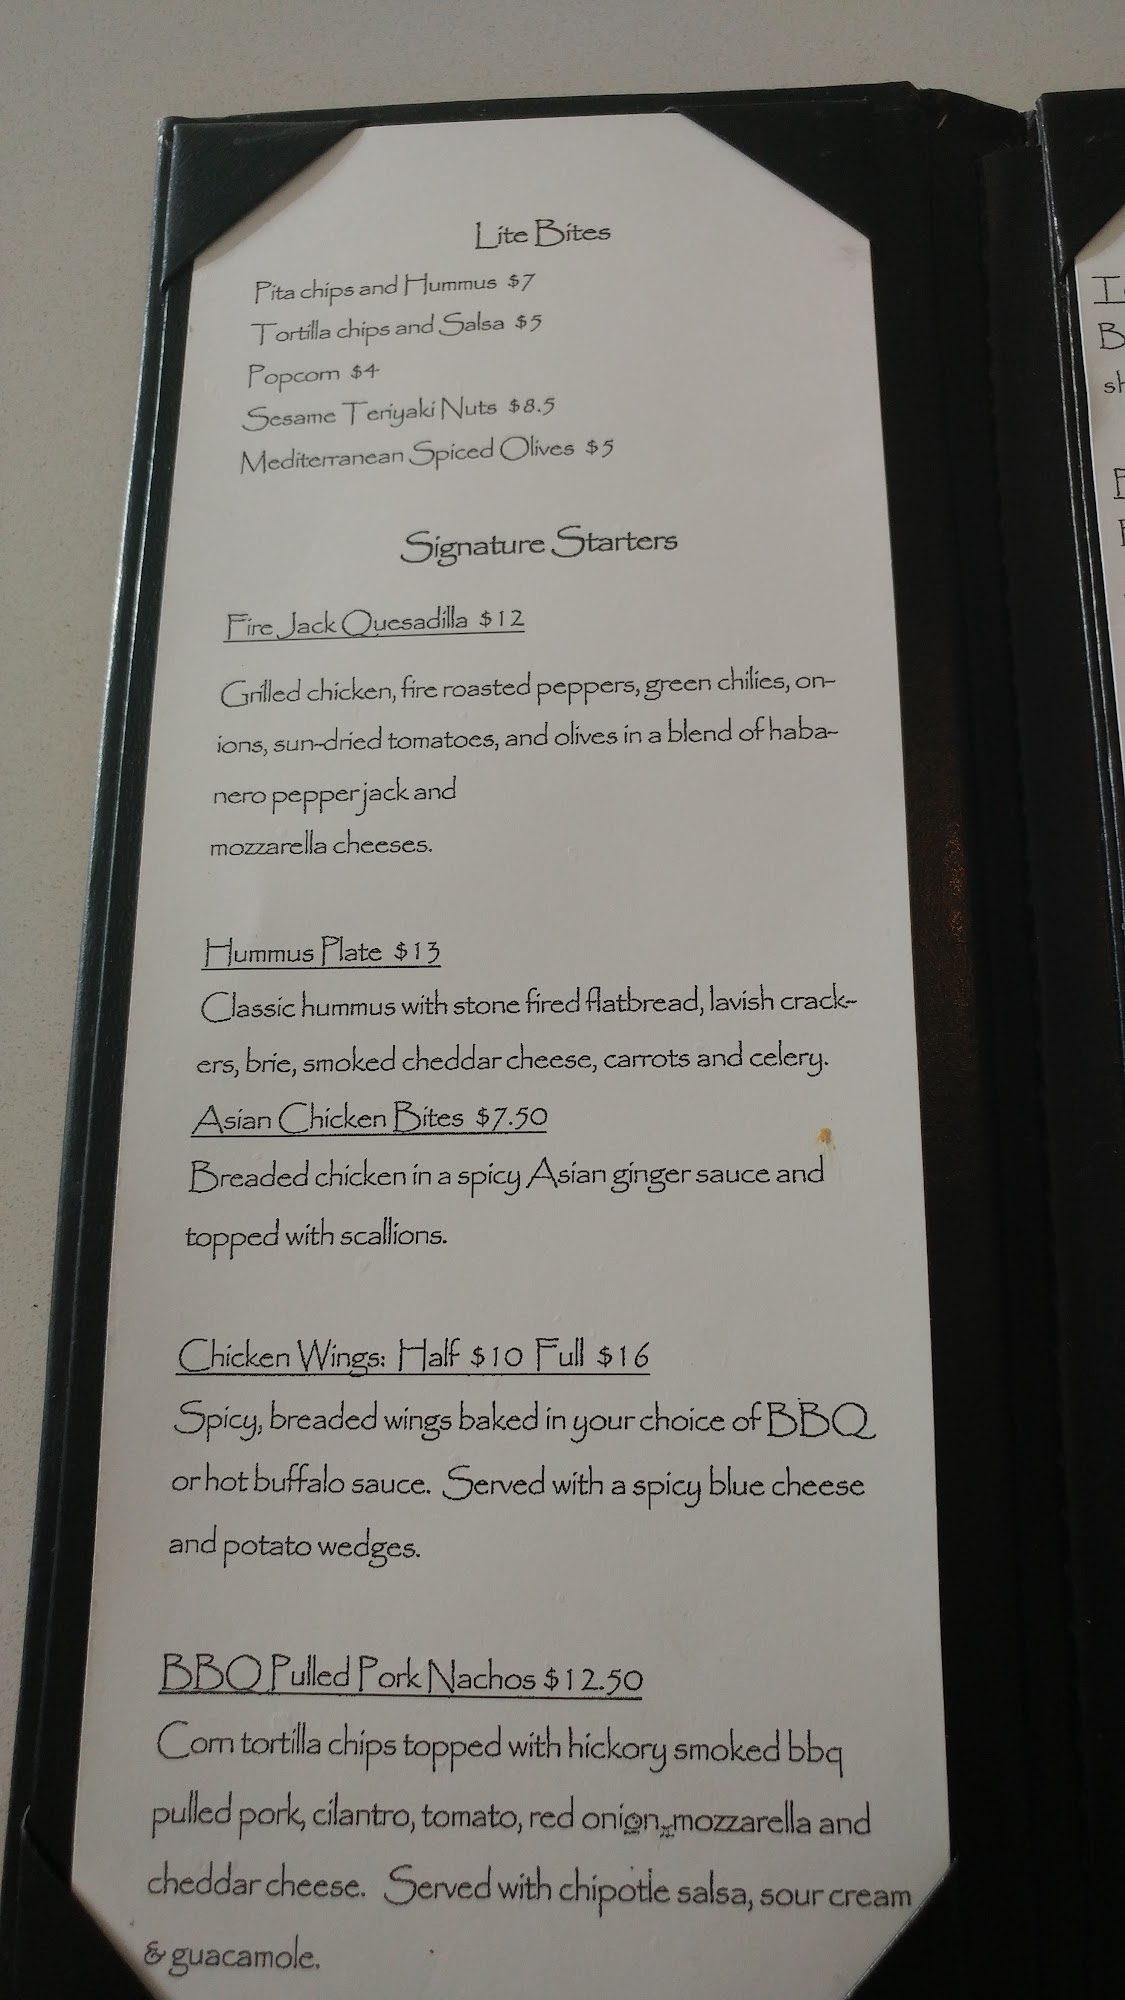 Lite Bites
Pita chips and Hummus $7
Tortilla chips and Salsa $5
Popcorn $4
Sesame Teriyaki Nuts $8.5
Mediterranean Spiced Olives $5
Signature Starters
Fire Jack Quesadilla $12
Grilled chicken, fire roasted peppers, green chilies, on-
ions, sun-dried tomatoes, and olives in a blend of haba-
nero pepper jack and
mozzarella cheeses.
Hummus Plate $13
Classic hummus with stone fired flatbread, lavish crack-
ers, brie, smoked cheddar cheese, carrots and celery.
Asian Chicken Bites $7.50
Breaded chicken in a spicy Asian ginger sauce and
topped with scallions.
Chicken Wings: Half $10 Full $16
Spicy, breaded wings baked in your choice of BBQ
or hot buffalo sauce. Served with a spicy blue cheese
and potato wedges.
BBQ Pulled Pork Nachos $12.50
Corn tortilla chips topped with hickory smoked bbq
pulled pork, cilantro, tomato, red onion, mozzarella and
cheddar cheese. Served with chipotle salsa, sour cream
& guacamole.